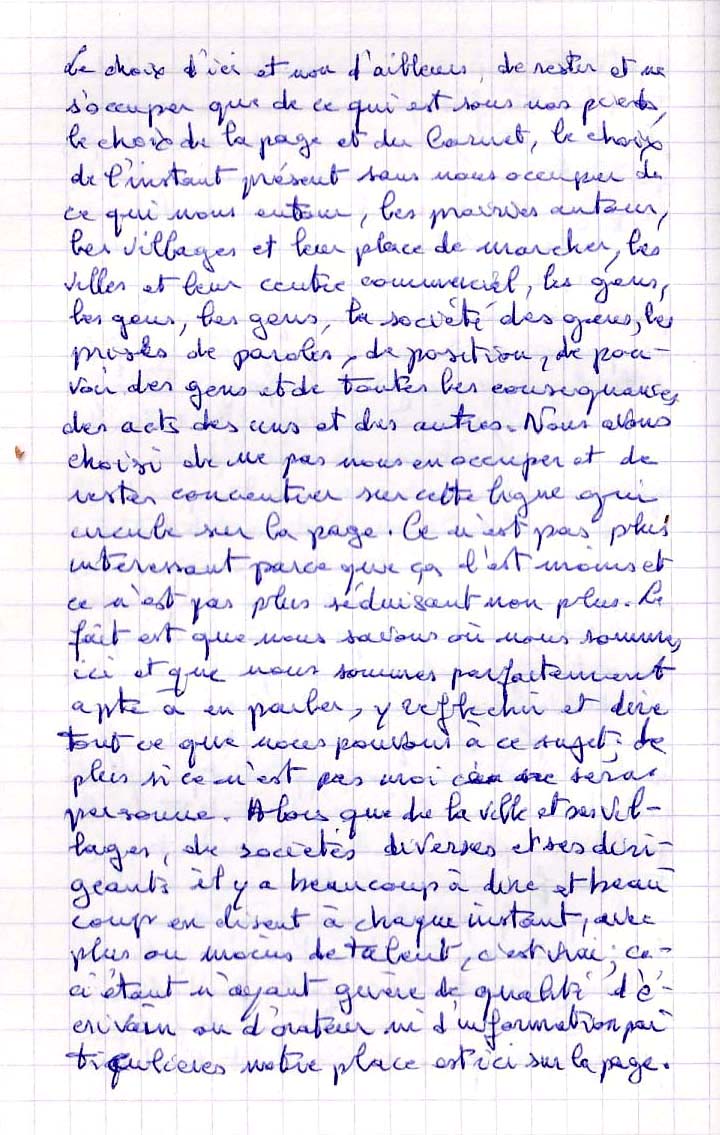 Le choix d'ici et non d'ailleurs, de rester et ne
s'occuper que de ce qui est sous nos pieds,
le choix de la page et du Carnet, le choix
de l'instant présent sans nous occuper de
ce qui nous entour, les prairies autour,
les villages et leur place de marcher, les
villes et leur centre commerciel, les gens,
les gens, les gens, la société des gens, les
prises de paroles, de position, de pou-
voir des gens et de toutes les consequances
des acts des uns et des autres. Nous avons
choisi de ne pas nous en occuper et de
rester concentrer sur cette ligne qui
circule sur la page. Ce n'est pas plus
interessant parce que ça l'est moins et
ce n'est pas plus séduisant non plus. Le
fait est que nous savons où nous sommes,
ici et que nous sommes parfaitement
apte à en parler, y reflechir et dire
tout ce que nous pouvons à ce sujet, de
plus si ce n'est pas moi ce sera
personne. Alors que de la ville et ses vil-
lages, de sociétés diverses et ses diri-
geants il y a beaucoup à dire et beau
coup en disent à chaque instant, avec
plus ou moins de talent, c'est vrai, ce-
ci étant n'ayant guère de qualité d'é-
crivain ou d'orateur ni d'information par
ticulieres notre place est ici sur la page.